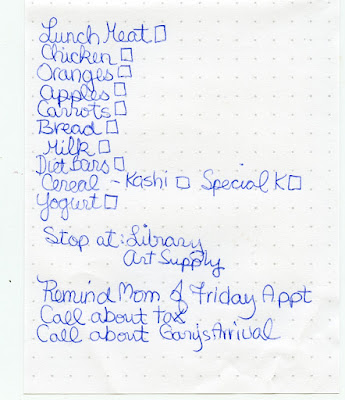 Lunch Meat □
Chicken □
Oranges □
Apples □
Carrots □
Bread □
Milk □
Diet Bars □
Cereal - Kashi □ Special K □
Yogurt □
Stop at: Library
Art Supply
Remind Mom of Friday Appt
Call about tax
Call about Gary's Arrival